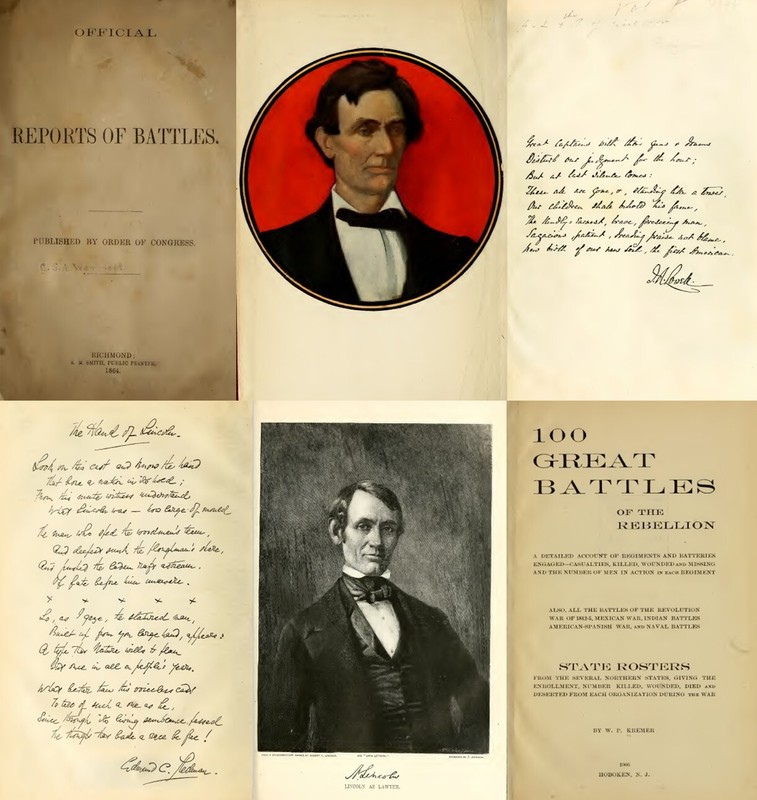 OFFICIAL
REPORTS OF BATTLES.
PUBLISHED BY ORDER OF CONGRESS.
RICHMOND:
R. M. SMITH, PUBLIC PRINTER,
1864.
Great Captains with their guns & drums
Disturb our judgment for the hour;
But at last silence comes:
These all are gone, &, standing like a tower,
Our children shall behold his fame,
The kindly-earnest, brave, foreseeing man,
Sagacious, patient, dreading praise not blame,
New birth of our new soil, the first American.
J. R. Lowell.
The Hand of Lincoln.
Look on this cast and know the hand
That bore a nation in its hold;
From this mute witness understand
What Lincoln was — how large of mould
The man who sped the woodman's team,
And deepest sunk the ploughman's share,
And pushed the laden raft astream,
Of fate before him unaware.
x x x x
Lo, as I gaze, the statured man,
Built up from yon large hand, appears:
A type that Nature wills to plan
But once in all a people's years.
What better than this voiceless cast
To tell of such a one as he,
Since through its living semblance passed
The thought that bade a race be free!
Edmund C. Stedman.
A Lincoln
LINCOLN AS LAWYER.
100
GREAT
BATTLES
OF THE
REBELLION
A DETAILED ACCOUNT OF REGIMENTS AND BATTERIES
ENGAGED—CASUALTIES, KILLED, WOUNDED AND MISSING
AND THE NUMBER OF MEN IN ACTION IN EACH REGIMENT
ALSO, ALL THE BATTLES OF THE REVOLUTION
WAR OF 1812-5, MEXICAN WAR, INDIAN BATTLES
AMERICAN-SPANISH WAR, AND NAVAL BATTLES
STATE ROSTERS
FROM THE SEVERAL NORTHERN STATES, GIVING THE
ENROLLMENT, NUMBER KILLED, WOUNDED, DIED AND
DESERTED FROM EACH ORGANIZATION DURING THE WAR
BY W. P. KREMER
1906
HOBOKEN, N. J.